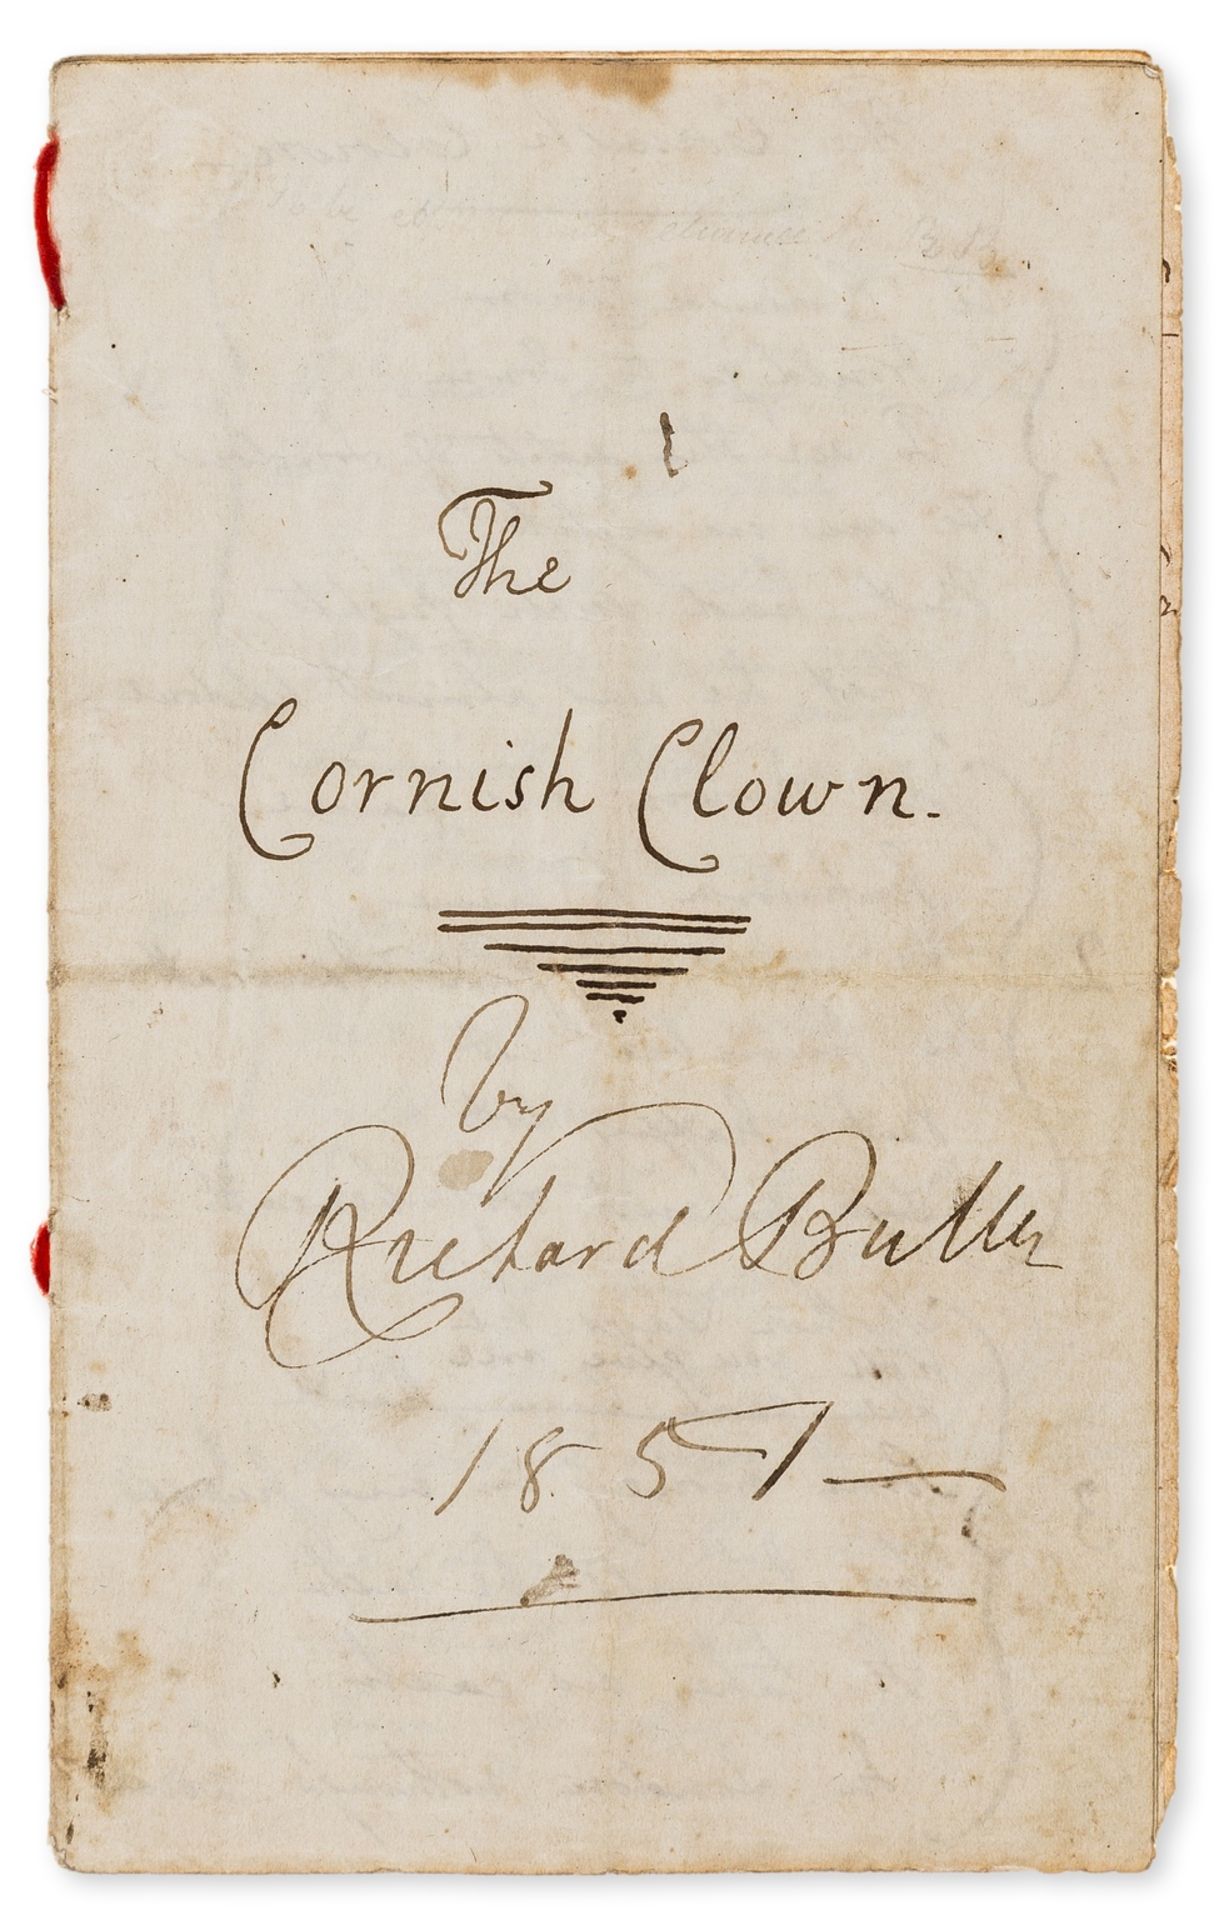 The
Cornish Clown.
by
Richard Butler
1857